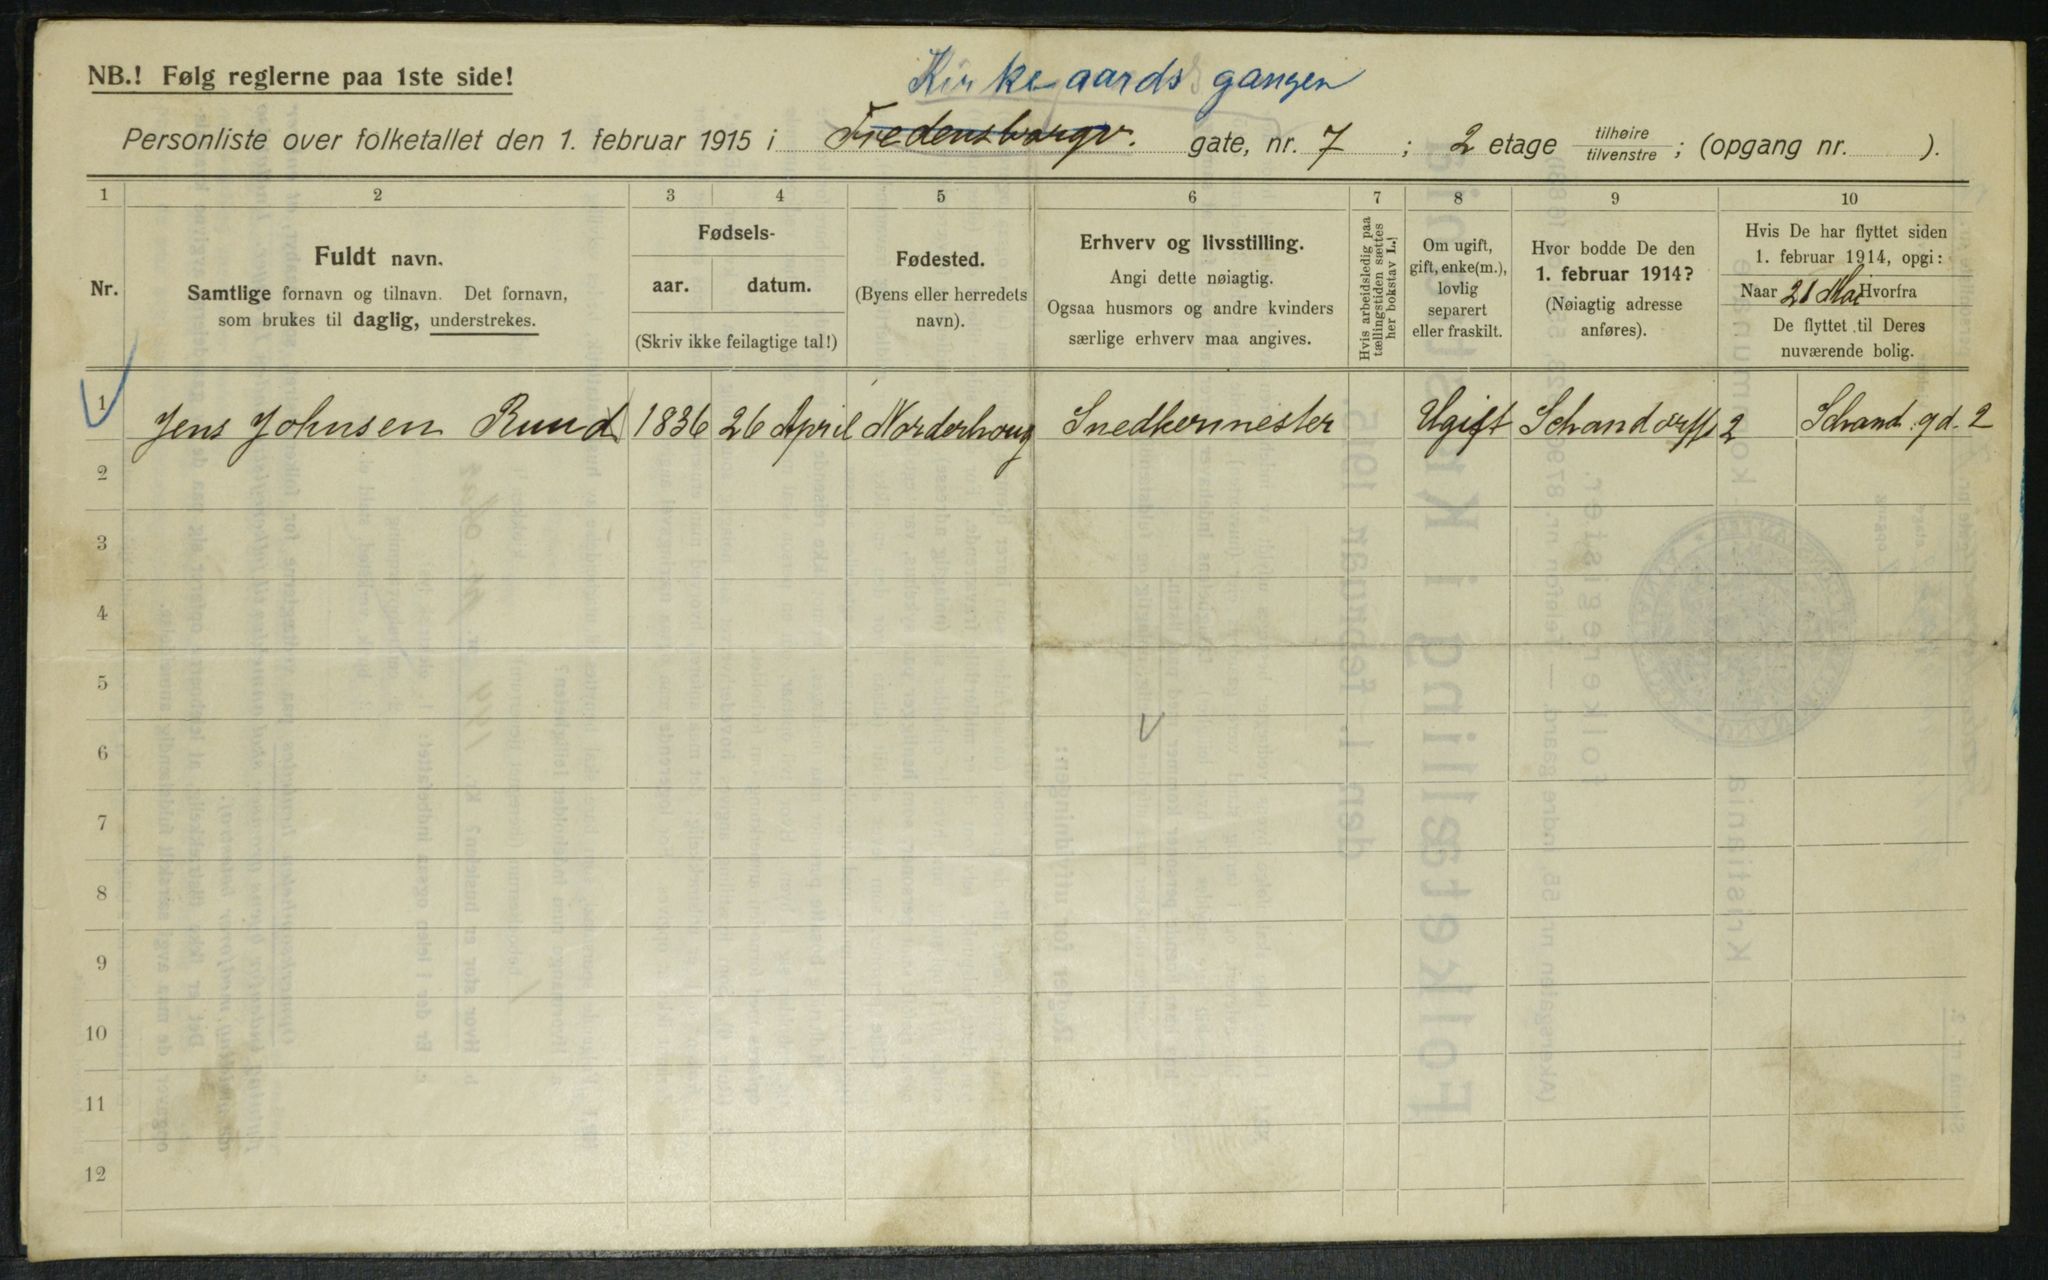 NB.! Følg reglerne paa 1ste side!
Kirkegaards gangen
Personliste over folketallet den 1. februar 1915 i Fredensborgv. gate, nr. 7 ; 2 etage tilhøire/tilvenstre ; (opgang nr. ).
1 2 3 4 5 6 7 8 9 10
Nr.
Fuldt navn.
Samtlige fornavn og tilnavn. Det fornavn,
som brukes til daglig, understrekes.
Fødsels-
aar. datum.
(Skriv ikke feilagtige tal!)
Fødested.
(Byens eller herredets
navn).
Erhverv og livsstilling.
Angi dette nøiagtig.
Ogsaa husmors og andre kvinders
særlige erhverv maa angives.
Hvis arbeidsledig paa
tællingstiden sættes
her bokstav L.!
Om ugift,
gift, enke(m.),
lovlig
separert
eller fraskilt.
Hvor bodde De den
1. februar 1914?
(Nøiagtig adresse
anføres).
Hvis De har flyttet siden
1. februar 1914, opgi:
Naar 21 Mai Hvorfra
De flyttet til Deres
nuværende bolig.
1 Jens Johnsen Ruud 1836 26 April Norderhoug Snedkermester Ugift Schandorffs 2 Schand. gd. 2
2
3
4
5
6
7
8
9
10
11
12